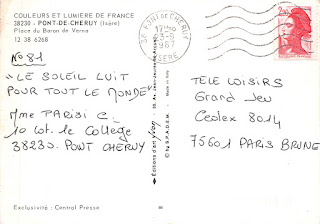 COULEURS ET LUMIERE DE FRANCE
38230 - PONT-DE-CHERUY (Isère)
Place du Baron de Verna
12 38 6268
N° 81
"LE SOLEIL LUIT
POUR TOUT LE MONDE"
Mme PARISI C.
10 lot. le College
38230 PONT CHERUY
Exclusivité : Central Presse
Editions d'art
yvon
© by S.P.A.D.E.M.
Made in Italy
38 PONT DE CHERUY
17H
23-9
1987
ISERE
2,20
TELE LOISIRS
Grand Jeu
Cedex 8014
75601 PARIS BRUNE